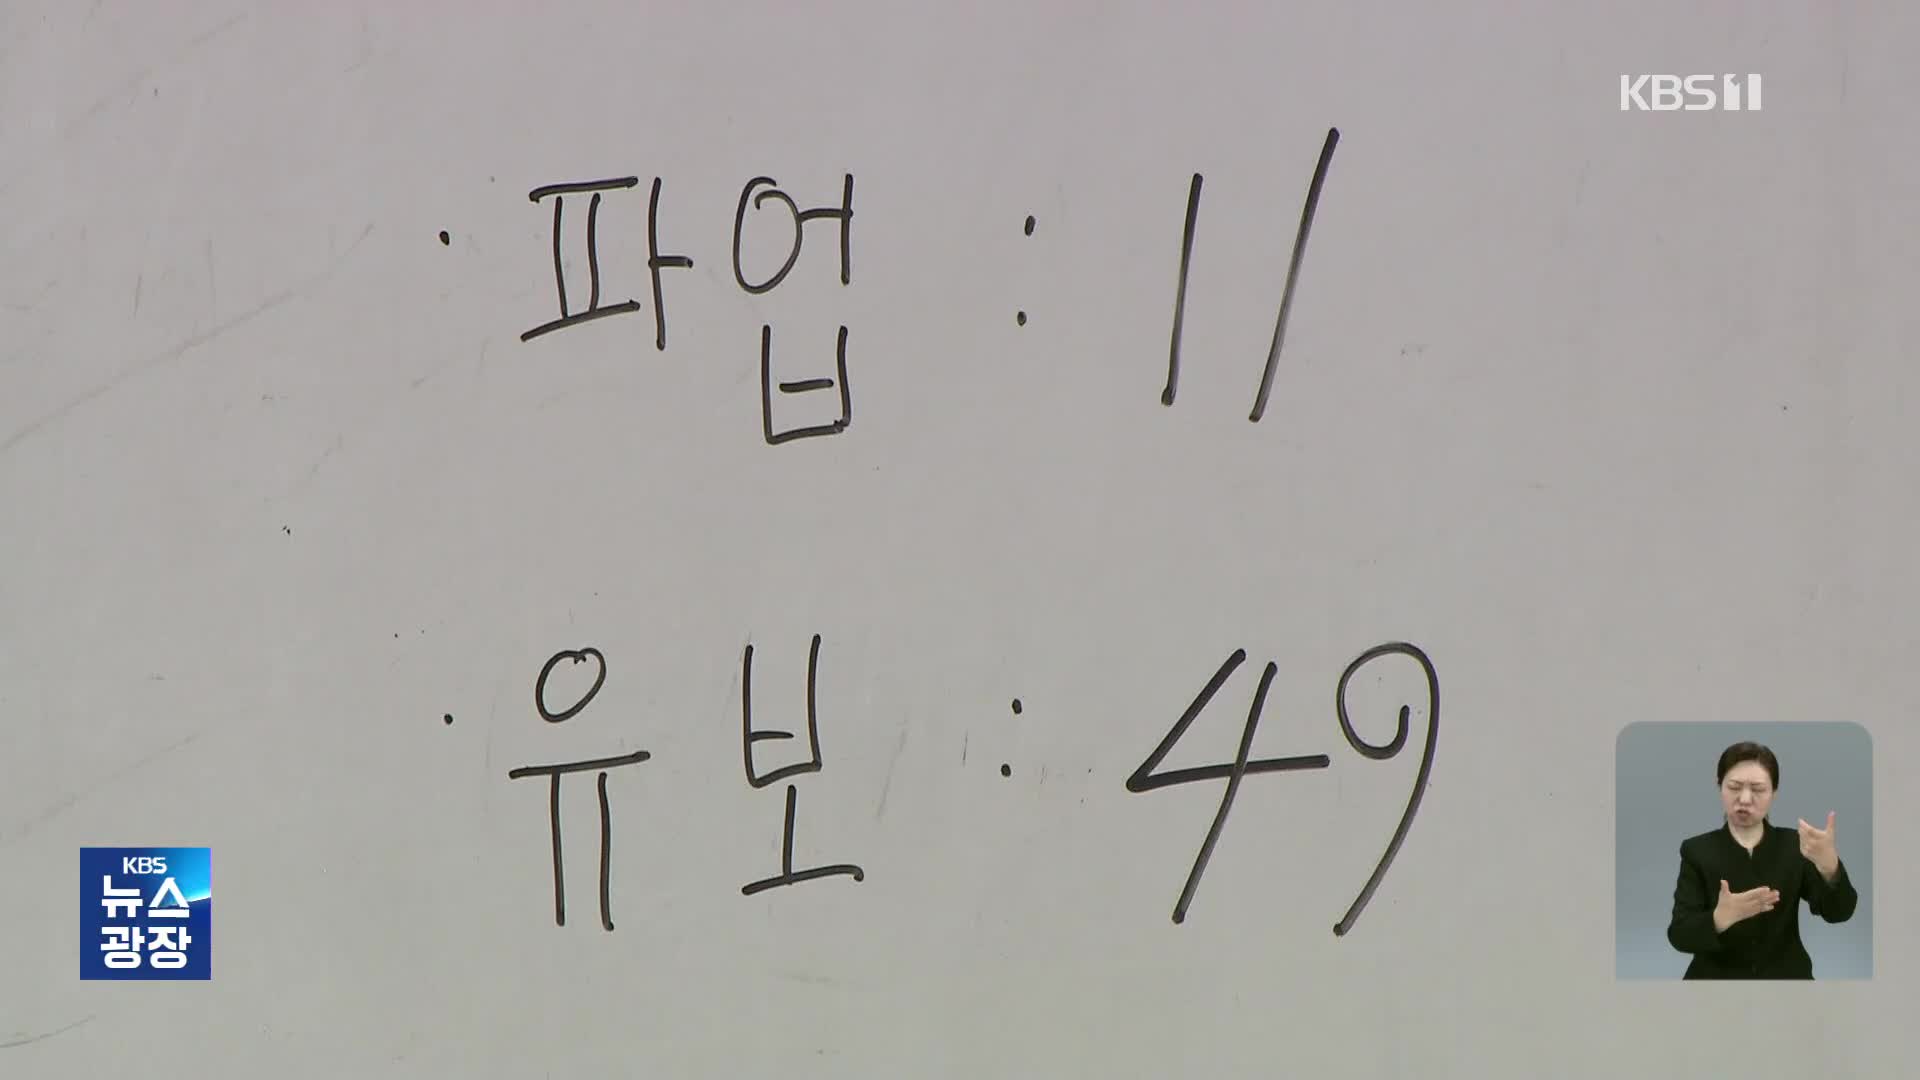 KBS 1
· 파업 : 11
· 유보 : 49
KBS
뉴스
광장